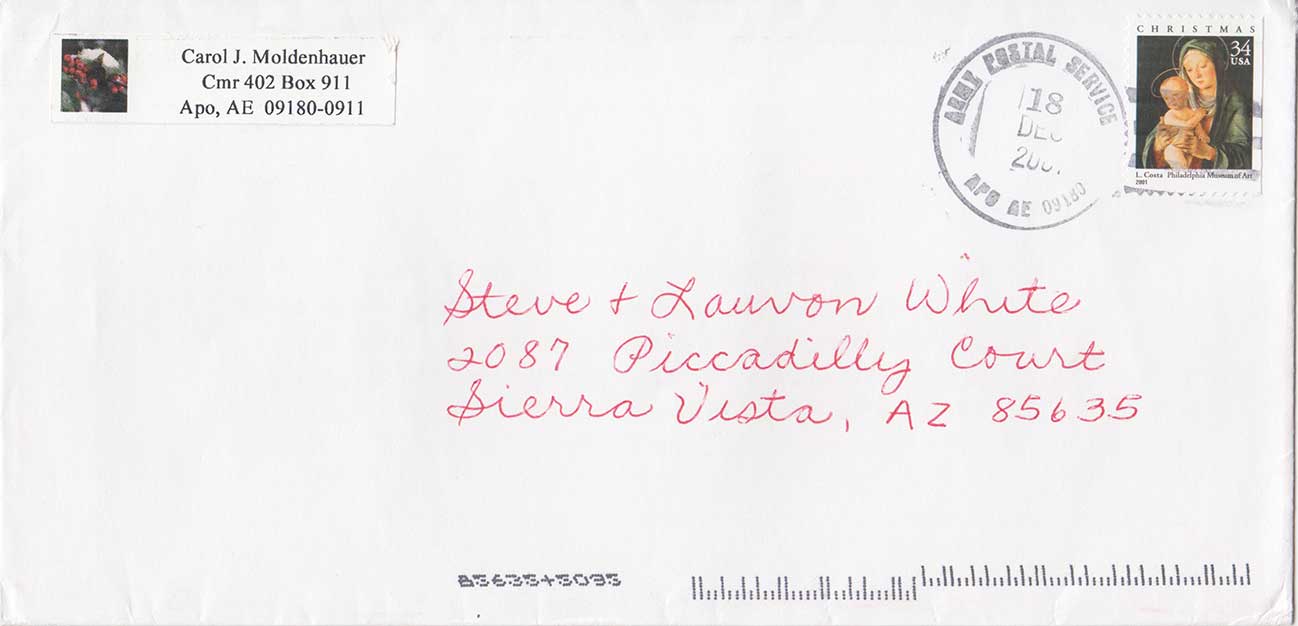 Carol J. Moldenhauer
Cmr 402 Box 911
Apo, AE 09180-0911
ARMY POSTAL SERVICE
18
DEC
200
APO AE 09180
CHRISTMAS
34
USA
L. Costa Philadelphia Museum of Art
2001
Steve + Lauvon White
2087 Piccadilly Court
Sierra Vista, AZ 85635
85635+5035